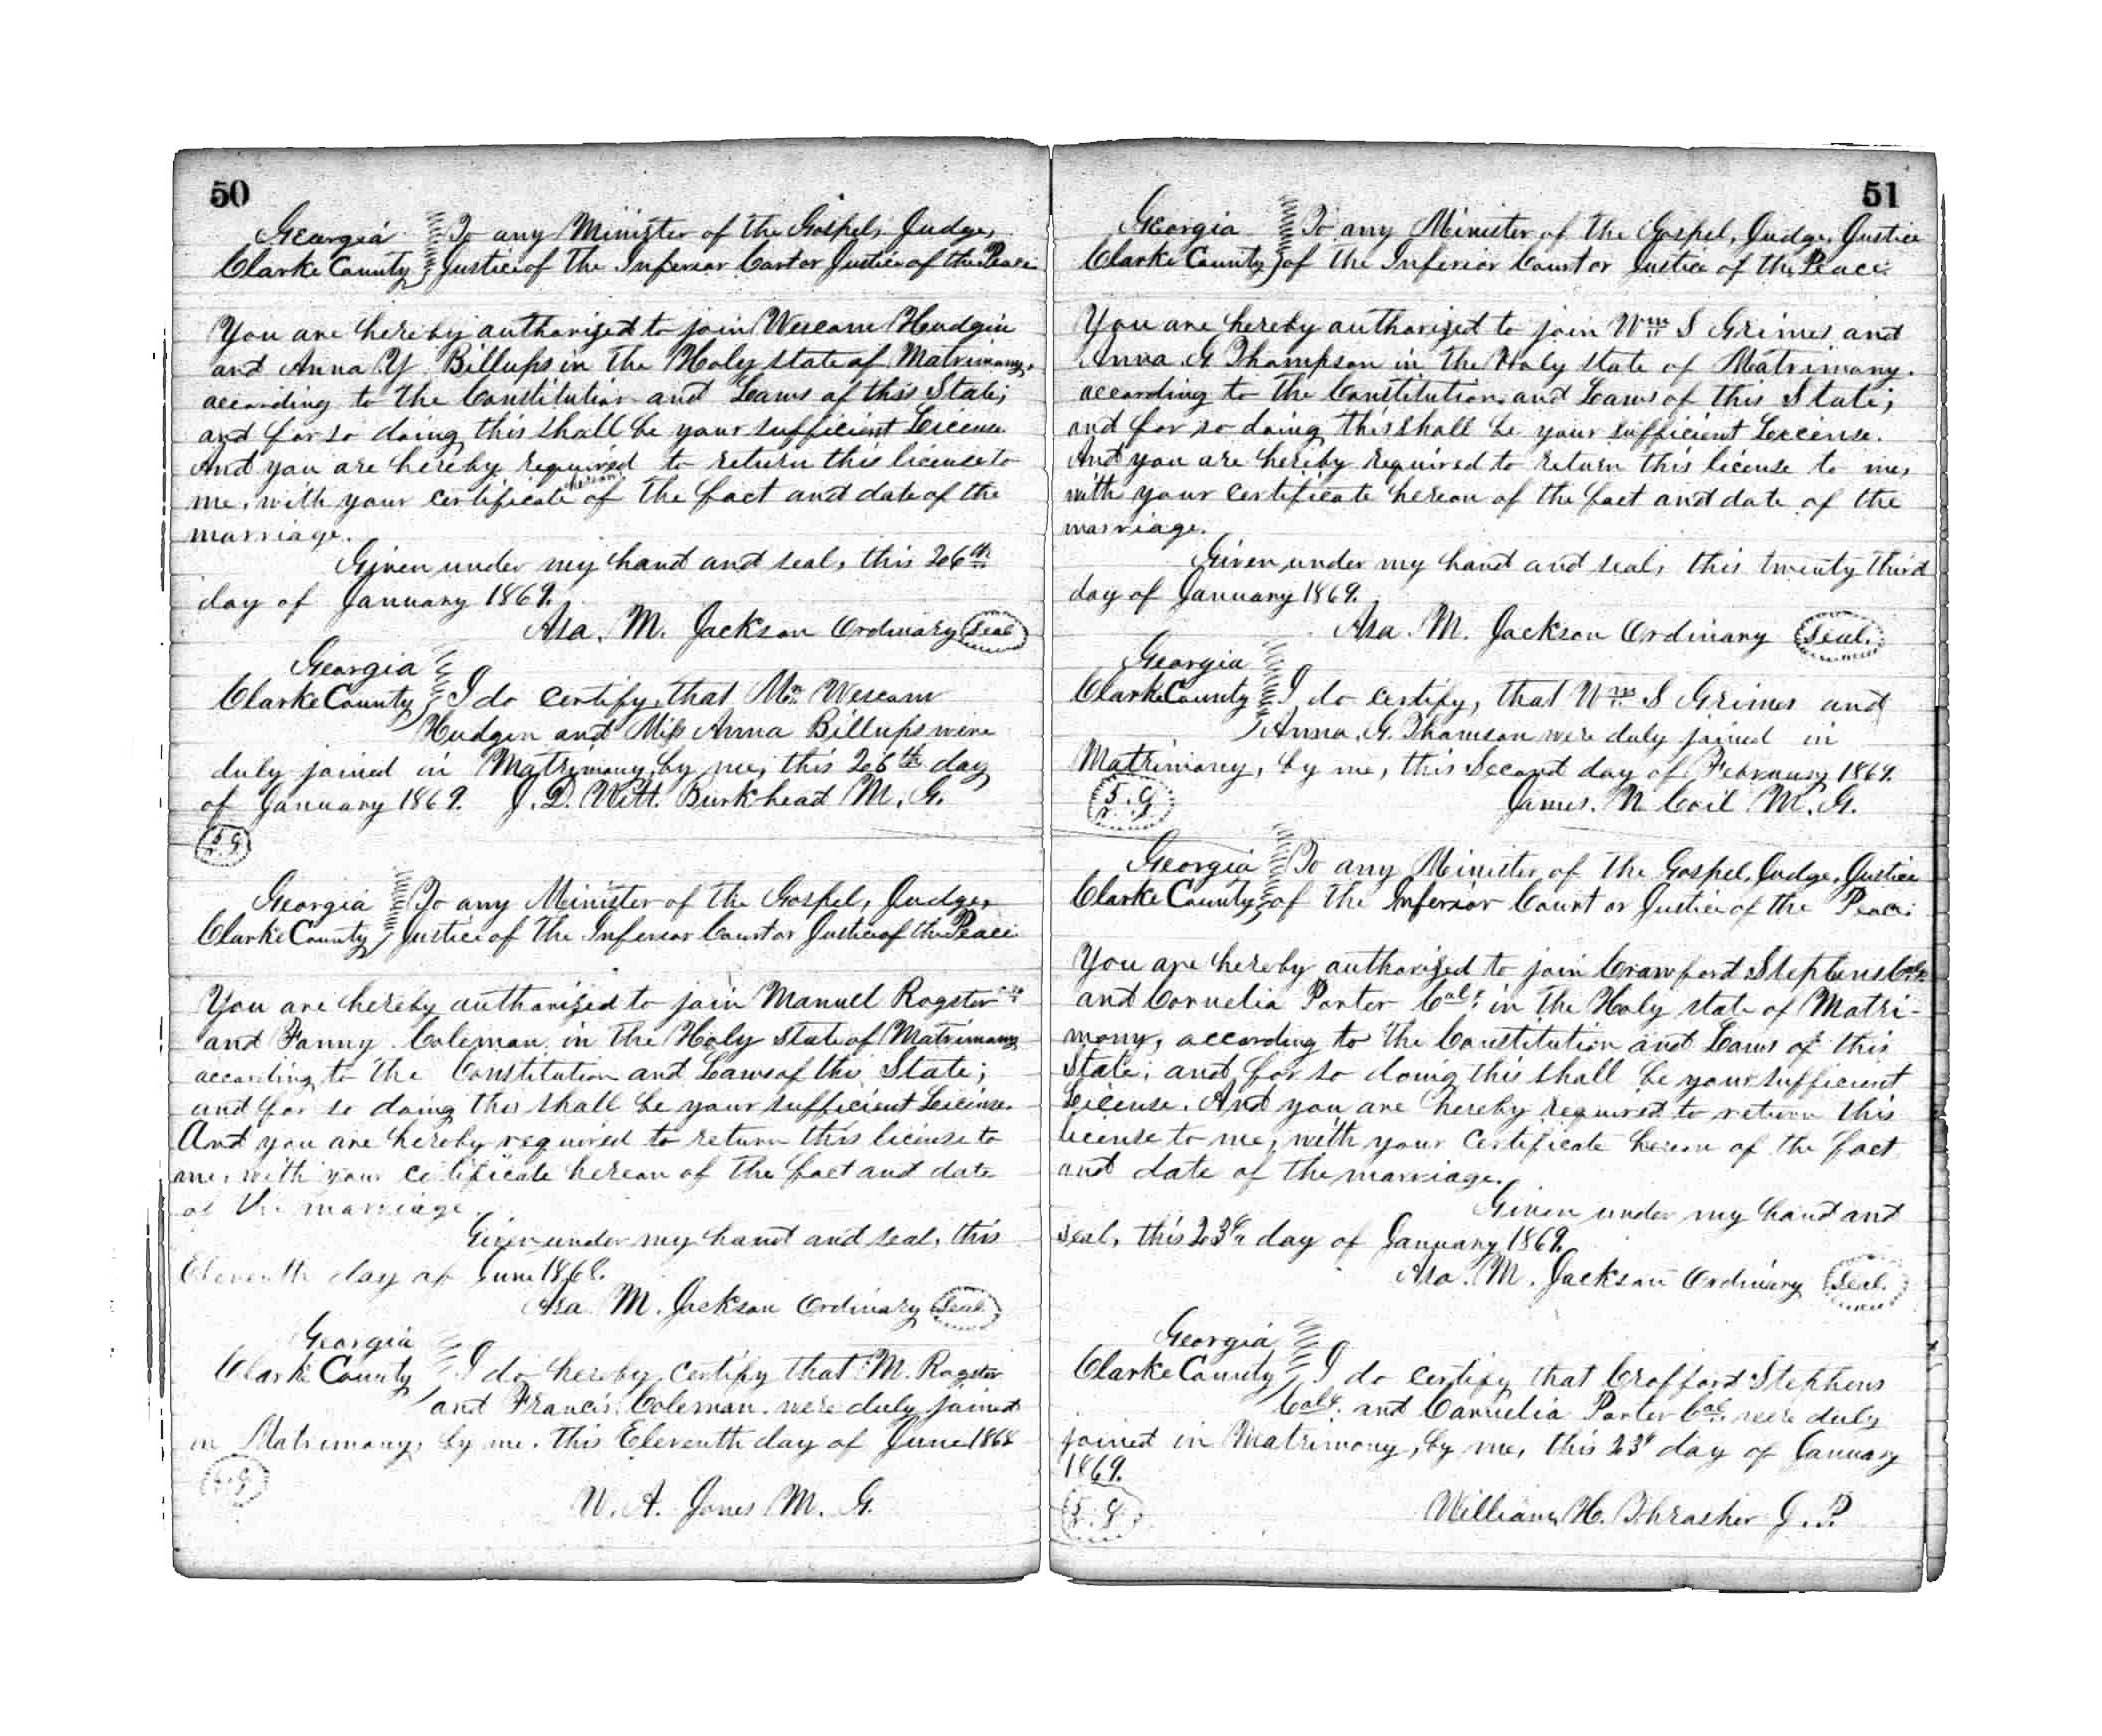 50
Georgia To any Minister of the Gospel, Judge,
Clarke County Justice of the Inferior Cort or Justice of the Peace
You are hereby authorized to join Wescom Hudgin
and Anna Y. Billups in the Holy state of Matrimony,
according to the Constitution and Laws of this State;
and for so doing this shall be your sufficient License
And you are hereby required to return this license to
me, with your certificate hereon of the fact and date of the
marriage.
Given under my hand and seal, this 26th
day of January 1869.
Asa. M. Jackson Ordinary Seal
Georgia
Clarke County I do certify, that Mr. Wescom
Hudgin and Miss Anna Billups were
duly joined in Matrimony, by me, this 26th day
of January 1869. J. D. Witt. Burkhead M. G.
5 c
r. g
Georgia To any Minister of the Gospel, Judge,
Clarke County Justice of the Inferior Court or Justice of the Peace
You are hereby authorized to join Manuel Rogster
and Fanny Coleman in the Holy State of Matrimony
according to the Constitution and Laws of this State;
and for so doing this shall be your sufficient License.
And you are hereby required to return this license to
me, with your certificate hereon of the fact and date
of the marriage.
Given under my hand and seal, this
Eleventh day of June 1868.
Asa M. Jackson Ordinary Seal
Georgia
Clarke County I do hereby certify that M. Rogster
and Francis Coleman were duly joined
in Matrimony, by me. this Eleventh day of June 1868
W. A. Jones M. G.
51
Georgia To any Minister of the Gospel, Judge, Justice
Clarke County of the Inferior Court or Justice of the Peace.
You are hereby authorized to join Wm S Grimes and
Anna G Thompson in the Holy state of Matrimony.
according to the Constitution and Laws of this State;
and for so doing this shall be your sufficient License.
And you are hereby required to return this license to me,
with your certificate hereon of the fact and date of the
marriage.
Given under my hand and seal, this twenty third
day of January 1869.
Asa. M. Jackson Ordinary Seal.
Georgia
Clarke County I do certify, that Wm S Grimes and
Anna. G. Thomson were duly joined in
Matrimony, by me, this Second day of February 1869.
5. c
r. g
James. N Coil M. G.
Georgia To any Minister of the Gospel, Judge, Justice
Clarke County of the Inferior Court or Justice of the Peace.
You are hereby authorized to join Crawford Stephens Cold
and Cornelia Porter Cold. in the Holy state of Matri-
mony, according to the Constitution and Laws of this
State; and for so doing this shall be your sufficient
License. And you are hereby required to return this
license to me, with your certificate hereon of the fact
and date of the marriage.
Given under my hand and
seal, this 23d day of January 1869.
Asa. M. Jackson Ordinary Seal.
Georgia
Clarke County I do certify that Crofford Stephens
Cold. and Cornelia Porter Cold. were duly
joined in Matrimony, by me, this 23d day of January
1869.
William H. Thrasher J. P.